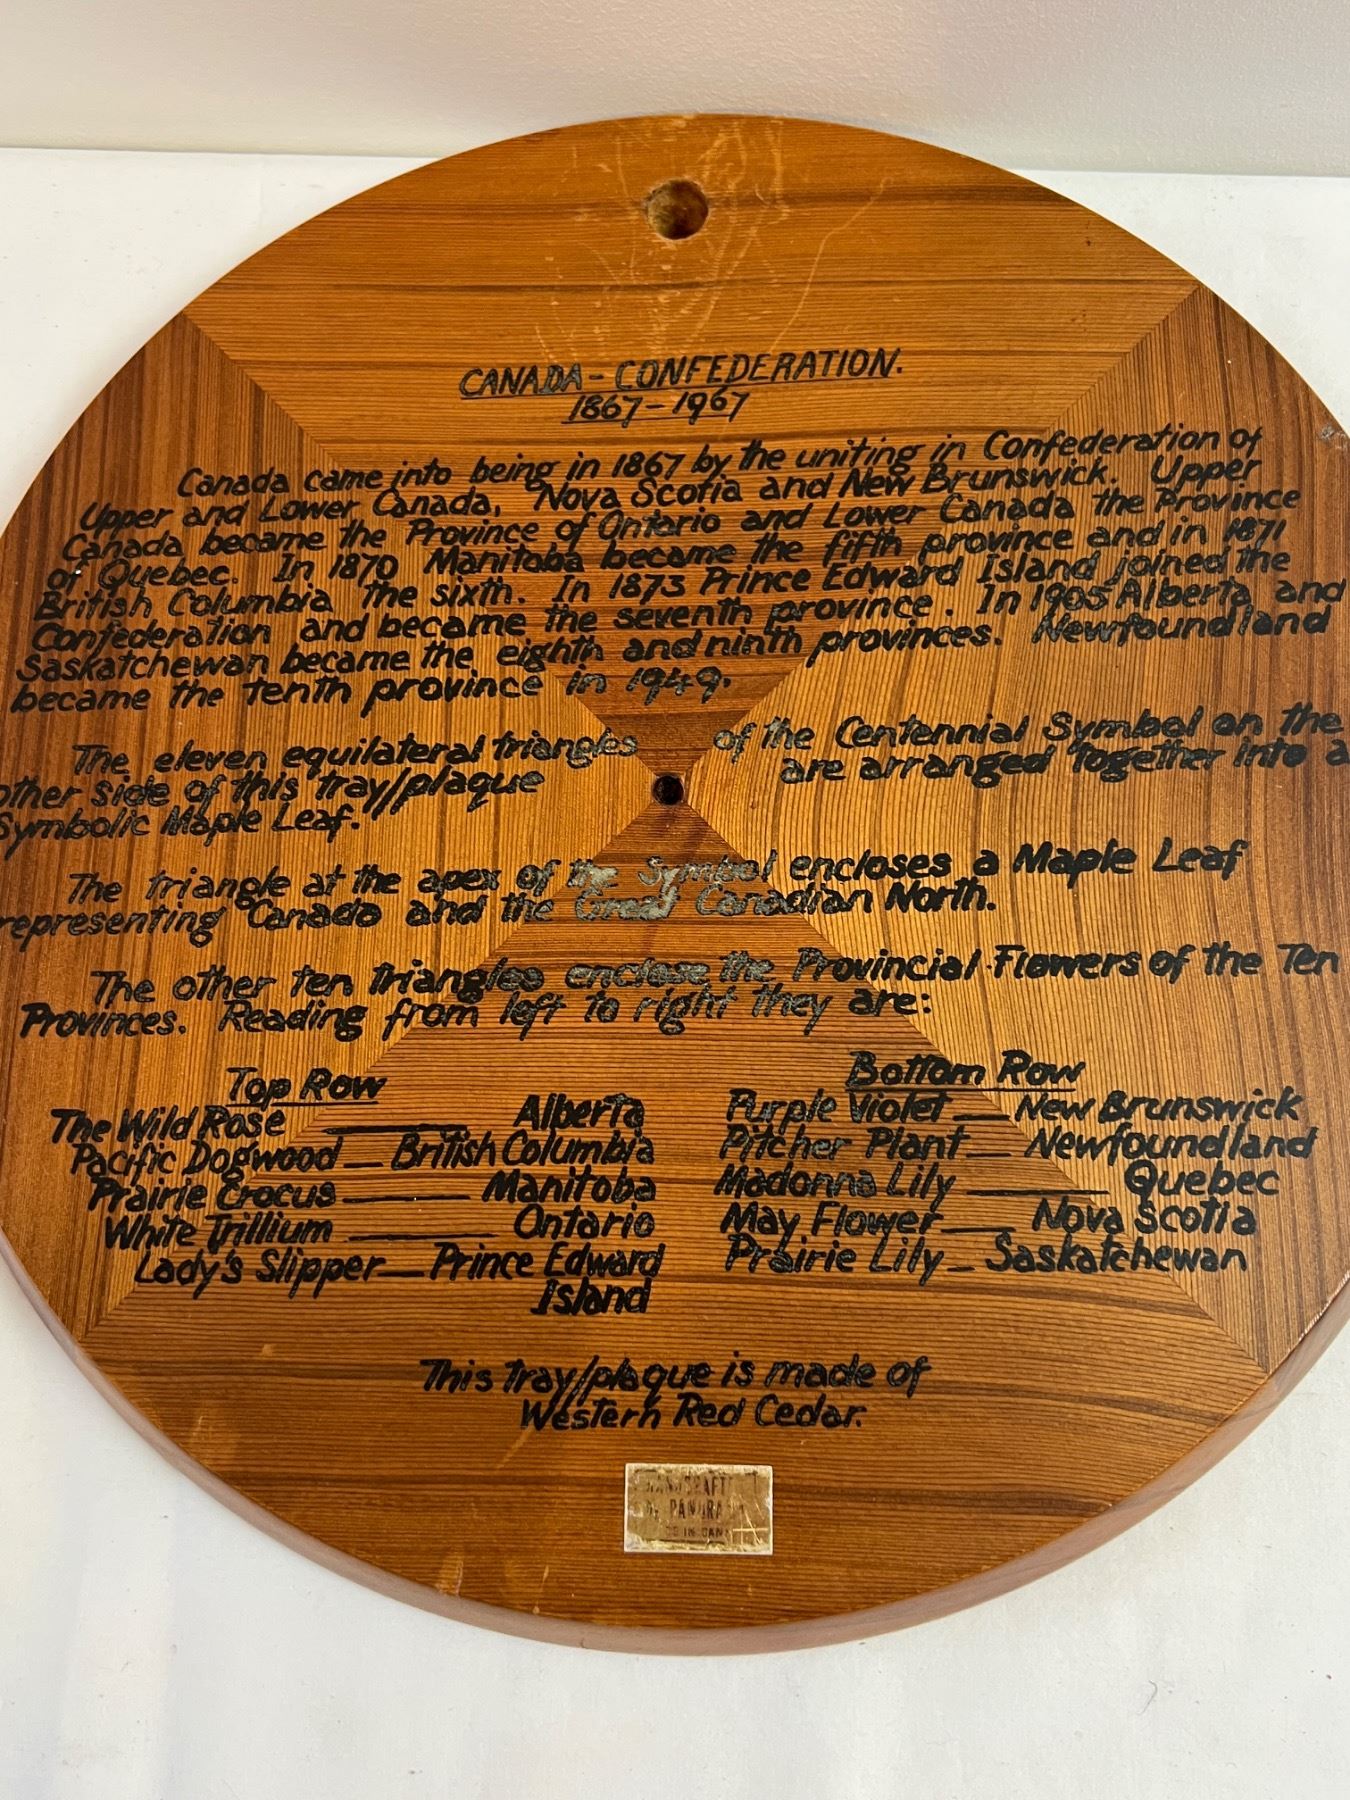 CANADA - CONFEDERATION.
1867 - 1967
Canada came into being in 1867 by the uniting in Confederation of
Upper and Lower Canada, Nova Scotia and New Brunswick. Upper
Canada became the Province of Ontario and Lower Canada the Province
of Quebec. In 1870 Manitoba became the fifth province and in 1871
British Columbia the sixth. In 1873 Prince Edward Island joined the
Confederation and became the seventh province. In 1905 Alberta and
Saskatchewan became the eighth and ninth provinces. Newfoundland
became the tenth province in 1949.
The eleven equilateral triangles of the Centennial Symbol on the
other side of this tray/plaque are arranged together into a
Symbolic Maple Leaf.
The triangle at the apex of the Symbol encloses a Maple Leaf
representing Canada and the Great Canadian North.
The other ten triangles enclose the Provincial Flowers of the Ten
Provinces. Reading from left to right they are:
Top Row
The Wild Rose Alberta
Pacific Dogwood British Columbia
Prairie Crocus Manitoba
White Trillium Ontario
Lady's Slipper Prince Edward
Island
Bottom Row
Purple Violet New Brunswick
Pitcher Plant Newfoundland
Madonna Lily Quebec
May Flower Nova Scotia
Prairie Lily Saskatchewan
This tray/plaque is made of
Western Red Cedar.